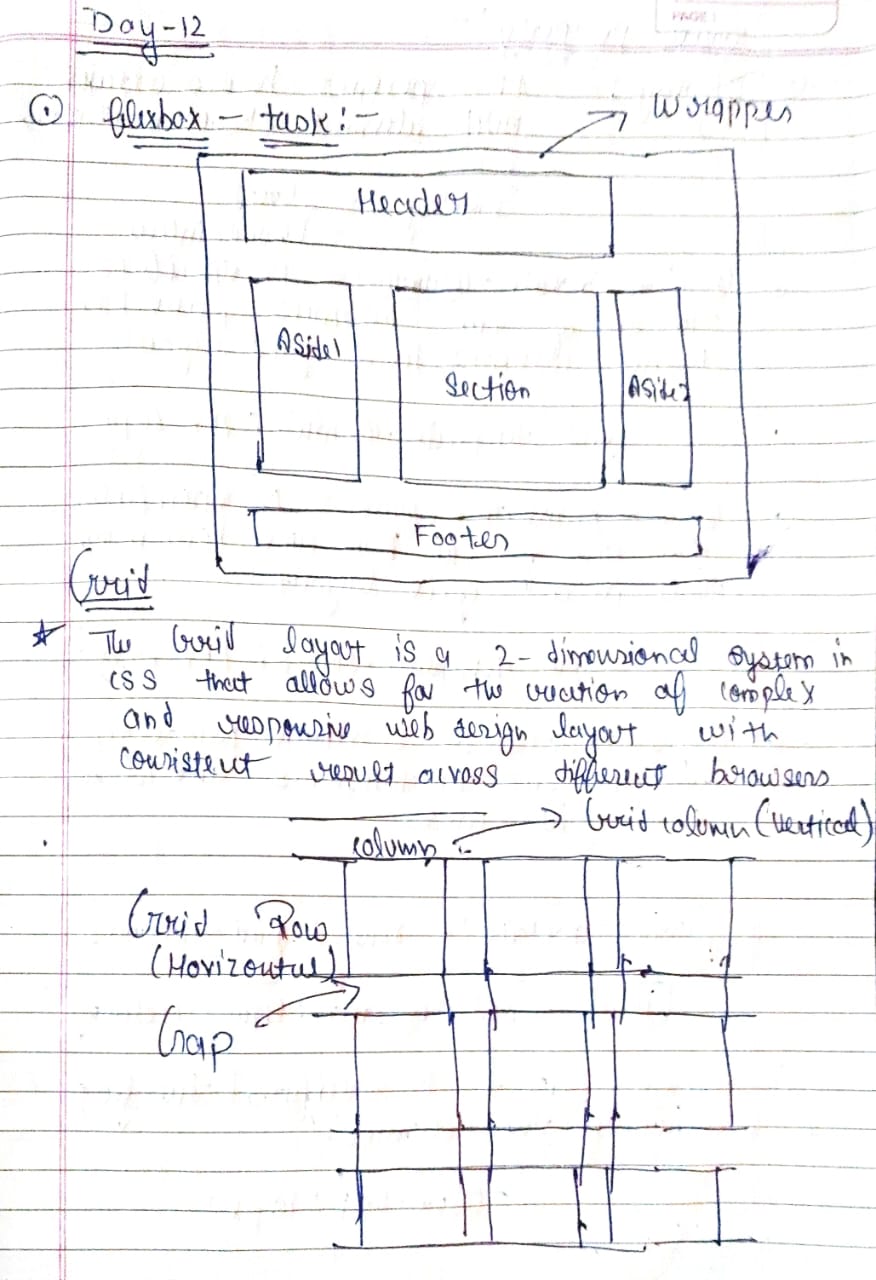 PAGE:
Day-12
① flexbox - task:-
Wrapper
Header
Aside1
Section
Aside2
Footer
Grid
★ The Grid layout is a 2-dimensional system in
CSS that allows for the creation of complex
and responsive web design layout with
consistent result across different browsers
Grid column (Vertical)
column
Grid Row
(Horizontal)
Gap